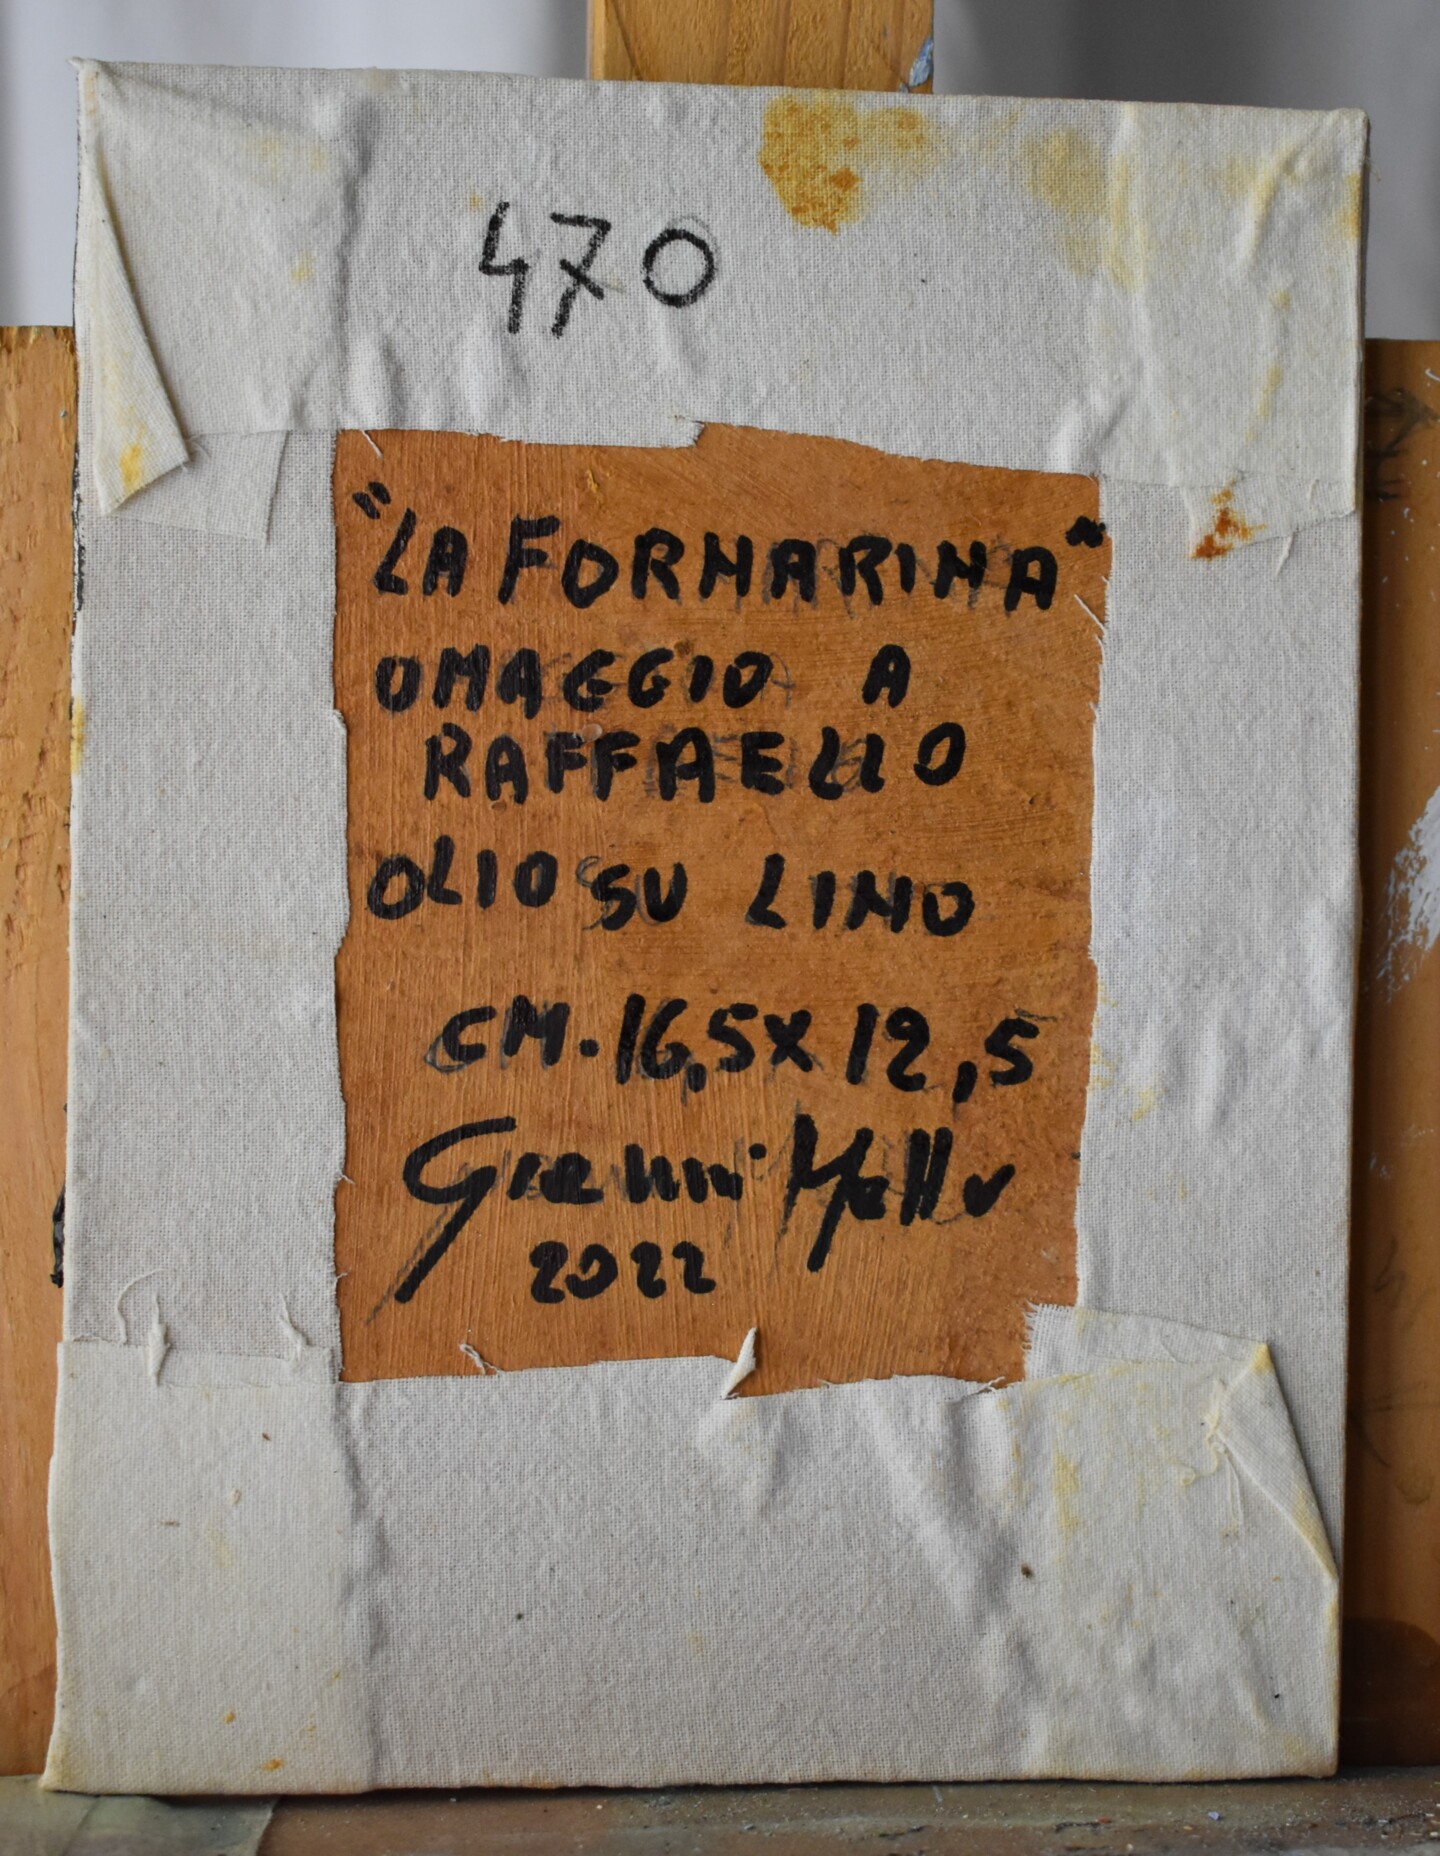 470
"LA FORNARINA"
OMAGGIO A
RAFFAELLO
OLIO SU LINO
CM. 16,5 X 12,5
Gianni Mallu
2022